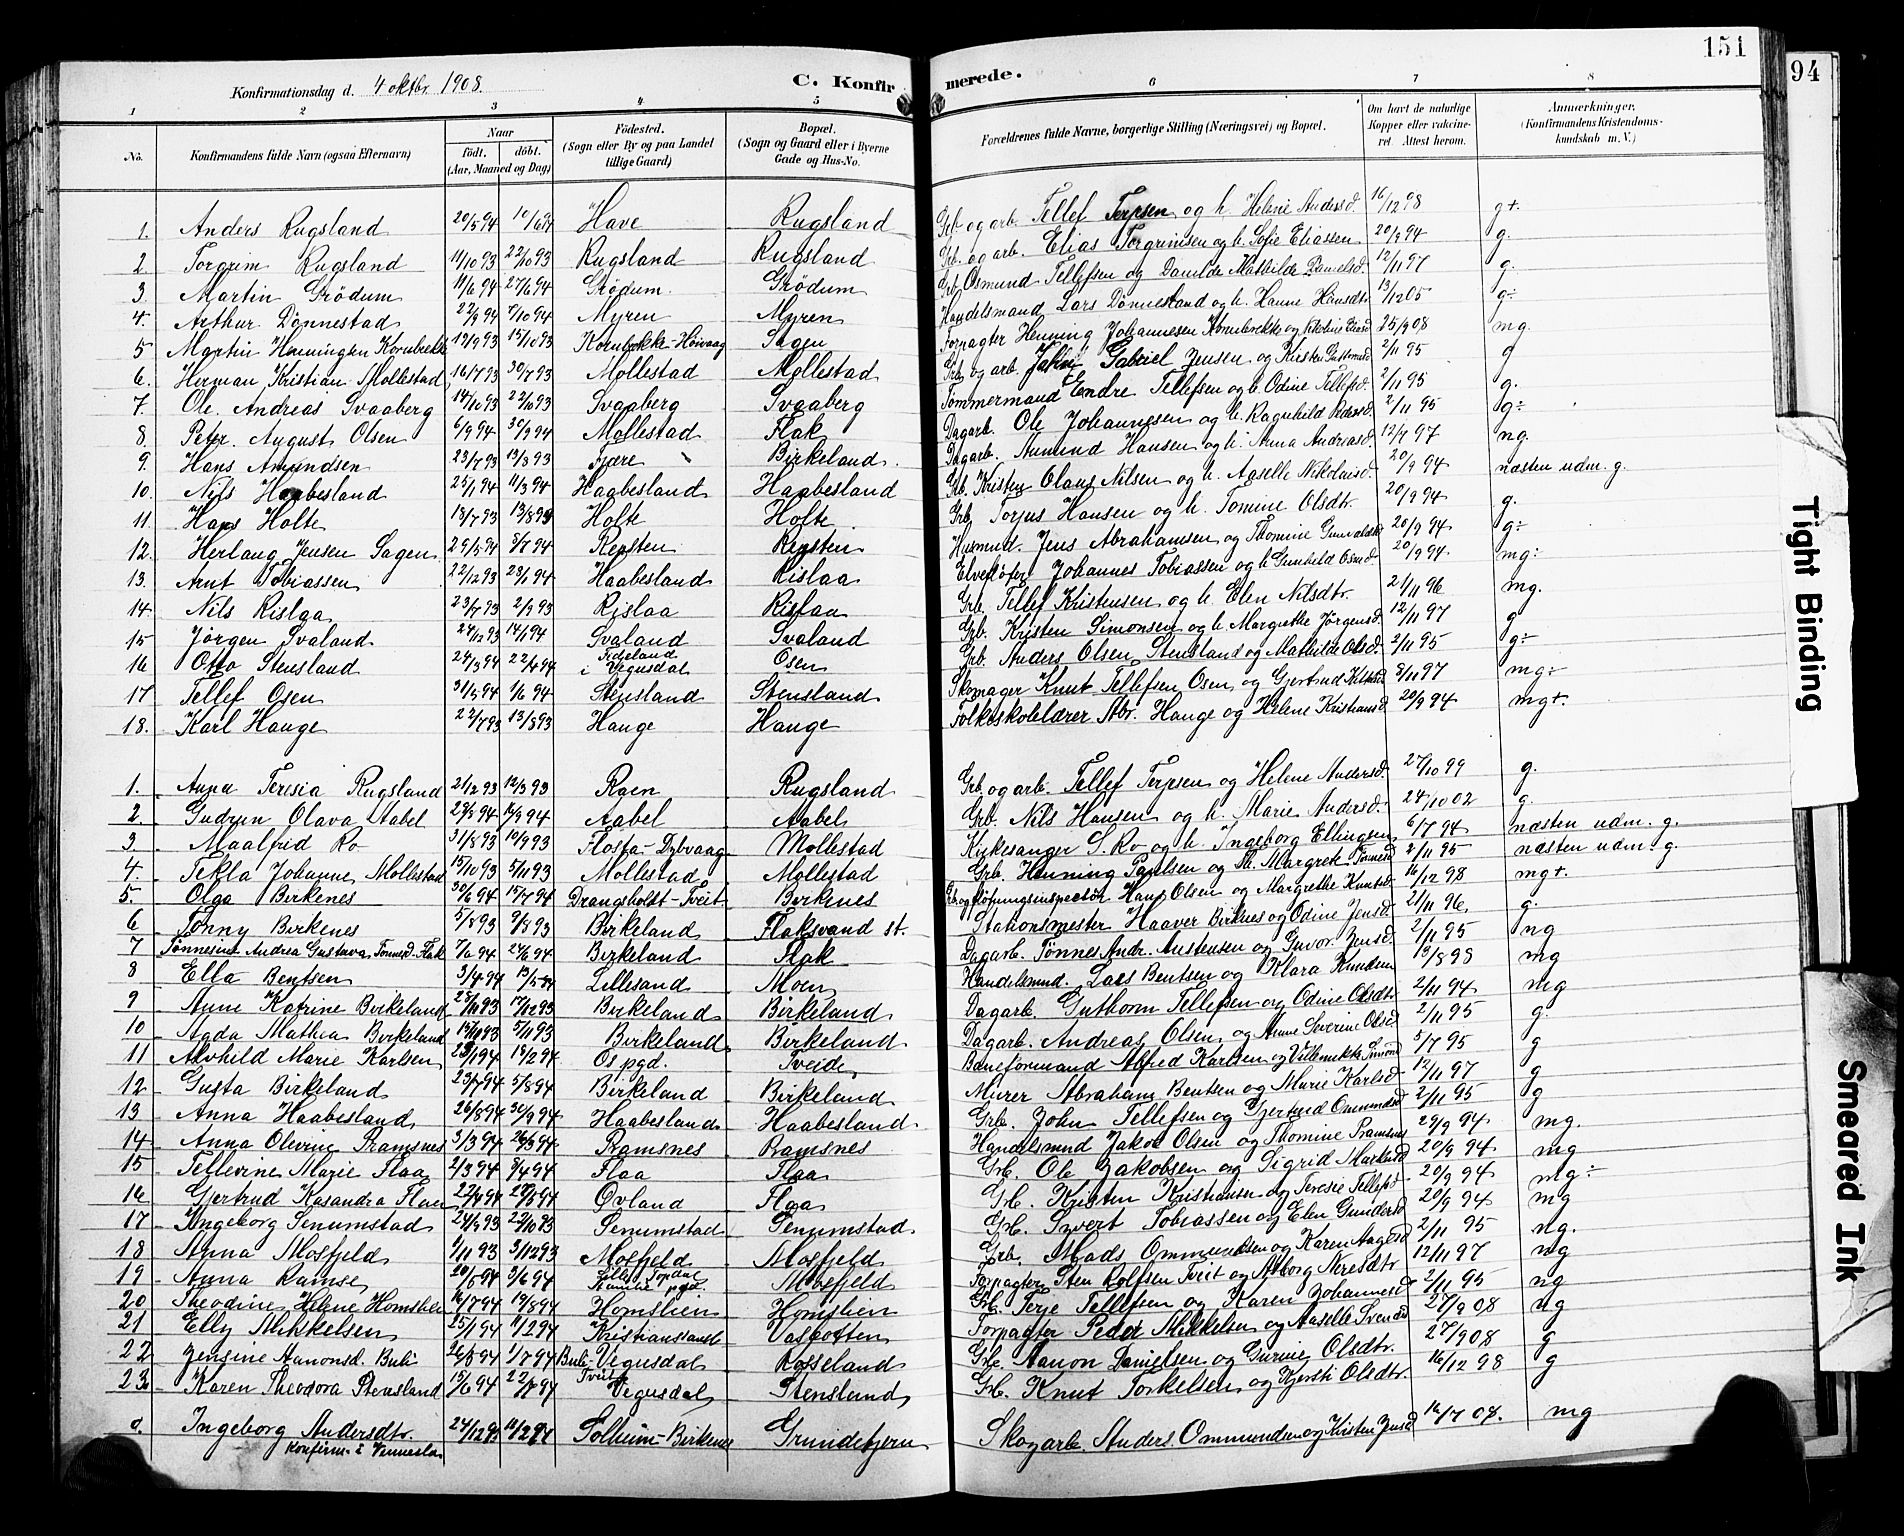 151
94
Konfirmationsdag d. 4 oktbr. 1908.
C. Konfirmerede.
1 2 3 4 5 6 7 8
No. Konfirmandens fulde Navn (ogsaa Efternavn) Naar født. døbt. (Aar, Maaned og Dag) Fødested. (Sogn eller By og paa Landet tillige Gaard) Bopæl. (Sogn og Gaard eller i Byerne Gade og Hus-No. Forældrenes fulde Navne, borgerlige Stilling (Næringsvei) og Bopæl. Om havt de naturlige Kopper eller vaccineret. Attest herom. Anmærkninger. (Konfirmandens Kristendomskundskab m. V.)
1. Anders Rugsland 20/5 94 10/6 94 Have Rugsland Grb. og arb. Tellef Terjesen og h. Helene Andersd. 16/12 98 g+.
2 Torgrim Rugsland 11/10 93 22/10 93 Rugsland Rugsland Grb. og arb. Elias Torgrimsen og h. Sofie Eliassen 20/9 94 g.
3 Martin Grödum 11/6 94 27/6 94 Grödum Grödum Grb. Osmund Tellefsen og Danilde Mathilde Danielsd. 12/11 97 g.
4. Arthur Dønnestad 22/9 94 7/10 94 Myren Myren Handelsmand Lars Dønnestad og h. Hanne Hansdtr 13/12 05 g÷
5 Martin Henningsen Kornbrekke 17/9 93 15/10 93 Kornbrekke-Høivaag Sagen Forpagter Henning Johannesen Kornbrekke og Nikoline 25/9 08 mg.
6. Herman Kristian Mollestad 16/7 93 30/7 93 Mollestad Mollestad Grb. og arb. Gabriel Jensen og Kirstie 2/11 95 g
7. Ole Andreas Svaaberg 14/10 93 22/10 93 Svaaberg Svaaberg Tømmermand Endre Tellefsen og h. Odine Tellefsd. 2/11 95 g.
8. Peter August Olsen 6/9 94 30/9 94 Mollestad Flak Dagarb. Ole Johannesen og h. Ragnhild Pedersd. 2/11 95 g÷
9. Hans Amundsen 23/7 93 13/8 93 Fjære Birkeland. Dagarb. Amund Hansen og h. Anna Andreasd. 12/9 97 ng.
10. Nils Haabesland 25/1 94 11/3 94 Haabesland Haabesland Grb. Kristen Olaus Nilsen og h. Aaselle Nikolaisd. 20/9 94 næsten udm. g.
11. Hans Holte 13/7 93 13/8 93 Holte Holte. Grb. Torjus Hansen og h. Tomine Olsdtr. 20/9 94 g.
12. Herlaug Jensen Sagen 29/5 94 8/7 94 Repsten Repsten Husmnd. Jens Abrahamsen og Thomine 20/9 94 g÷
13. Arnt Tobiassen 22/12 93 23/1 94 Haabesland Rislaa Elvefløter Johannes Tobiassen og h Gunhild Osmd. 20/9 94. mg÷
14. Nils Rislaa 23/7 93 2/9 93 Rislaa Rislaa Grb. Tellef Kristensen og h. Elen Nilsdtr. 21/11 96 mg.
15 Jørgen Svaland 24/12 93 14/1 94 Svaland Svaland Grb. Kristen Simonsen og h. Margrethe Jørgensd. 12/11 97 g
16 Otto Stensland 24/3 94 22/4 94 i Vegusdal Osen Grb. Anders Olsen Stensland og Mathilde Olsd. 2/11 95 g÷
17 Tellef Osen 31/5 94 1/6 94 Stensland Stensland Skomager Knut Tellefsen Osen og Gjertrud 8/11 97 mg÷
18. Karl Hauge 22/7 93 13/8 93 Hauge Hauge Folkeskolelærer Abr. Hauge og Helene Kristiansd 20/9 94 mg+.
1. Anna Teresia Rugsland 21/2 93 12/3 93 Roen Rugsland Grb. og arb. Tellef Terjesen og Helene Andersd. 27/10 99 g.
2. Gudrun Olava Aabel 23/8 94 16/9 94 Aabel Aabel Grb. Nils Hansen og h. Marie Andersd. 24/10 02 g.
3 Maalfrid Ro 31/8 93 10/9 93 Flosta-Dybvaag Mollestad Kirkesanger S. Ro og h. Ingeborg Ellingsen 6/7 94 næsten udm. g.
4. Tekla Johanne Mollestad 15/10 93 5/11 93 Mollestad Mollestad Grb. Henning Paulsen og Th. Margrete Tønnesd 2/11 95 næsten udm. g
5. Olga Birkenes 30/6 94 15/7 94 Drangsholdt-Tveit Birkenes Grb. og fløtningsinspectør Hans Olsen og Margrethe Knutsd 16/12 98 mg+.
6 Tonny Birkenes 5/8 93 9/8 93 Birkeland Flaksvand st. Stationsmester Haaver Birknes og Odine Jensd. 21/11 96. g.
7 Tønnesine Andrea Gustava Tønnesd. Flak 7/6 94 24/6 94 Birkeland Flak Dagarb. Tønnes Andr. Austensen og Guvor. Jensd. 2/11 95 ng
8 Ella Bentsen 3/4 94 13/5 94 Lillesand Moen Handelsmnd. Lars Bentsen og Klara Knudsen 19/8 98 mg
9 Anne Katrine Birkeland 25/11 93 17/12 93 Birkeland Birkeland Dagarb. Guthorm Tellefsen og Odine Olsdtr. 2/11 94 mg
10 Agda Mathea Birkeland 15/10 93 5/11 93 Birkeland Birkeland Dagarb. Andreas Olsen og Anne Severine Olsd. 2/11 95 g.
11 Alvhild Marie Karlsen 28/1 94 18/2 94 Os pgd. Tveide Baneformand Alfred Karlsen og Villemikke 5/7 95 g
12 Gusta Birkeland 23/7 94 5/8 94 Birkeland Birkeland Murer Abraham Bentsen og Marie Karlsd. 12/11 97 g
13 Anna Haabesland 26/8 94 30/9 94 Haabesland Haabesland Grb. John Tellefsen og Gjertrud Ommundsd 2/11 95 g
14 Anna Olevine Ramsnes 3/3 94 26/3 94 Ramsnes Ramsnes Handelsmnd Jakob Olsen og Thomine Ramsnes 29/9 94 mg.
15 Tellevine Marie Flaa 2/3 94 8/4 94 Flaa Flaa Grb. Ole Jakobsen og Sigrid 20/9 94 mg
16 Gjertrud Kasandra Flaa 22/4 94 27/5 94 Øvland Flaa Grb. Kristen Kristiansen og Teresie Tellefsd. 20/9 94 mg÷
17 Ingeborg Senumstad 24/9 93 22/10 93 Senumstad Senumstad Grb. Syvert Tobiassen og Elen Gundersd 20/9 94 mg
18 Anna Mosfjeld 1/11 93 3/12 93 Mosfjeld Mosfjeld Grb. Mads Ommundsen og Karen Aagesd 2/11 95 ng.
19 Anna Ramse 20/5 94 3/6 94 Lille Topdal pgd. Mosfjeld Forpagter Sten Rolfsen Tveit og Aslborg Neresdtr 12/11 97 mg
20 Theodine Helene Homslien 16/7 94 19/8 94 Homslien Homslien Grb. Terje Tellefsen og Karen Johannesd 2/11 95 ng
21 Elly Mikkelsen 25/1 94 11/2 94 Kristianssand Vasbotten Forpagter Peder Mikkelsen og Aaselle Svensd 27/9 08 ng
22 Jensine Aanonsd. Buli 26/5 94 1/7 94 Buli-Vegusdal Rosseland Grb. Aanon Danielsen og Gurine Olsdtr. 27/9 08 g
23 Karen Theodora Stensland 15/6 94 22/7 94 Tveit Vegusdal Stensland Grb. Knut Torkelsen og Kjersti Olsdtr. 16/12 98 g
a. Ingeborg Andersdtr. 24/12 93 11/2 94 Solheim-Birkenes Grundetjern Skogarb. Anders Ommundsen og Kirsten Jensd 16/7 08. mg
Konfirm. i Vennesla
Tight Binding
Smeared Ink